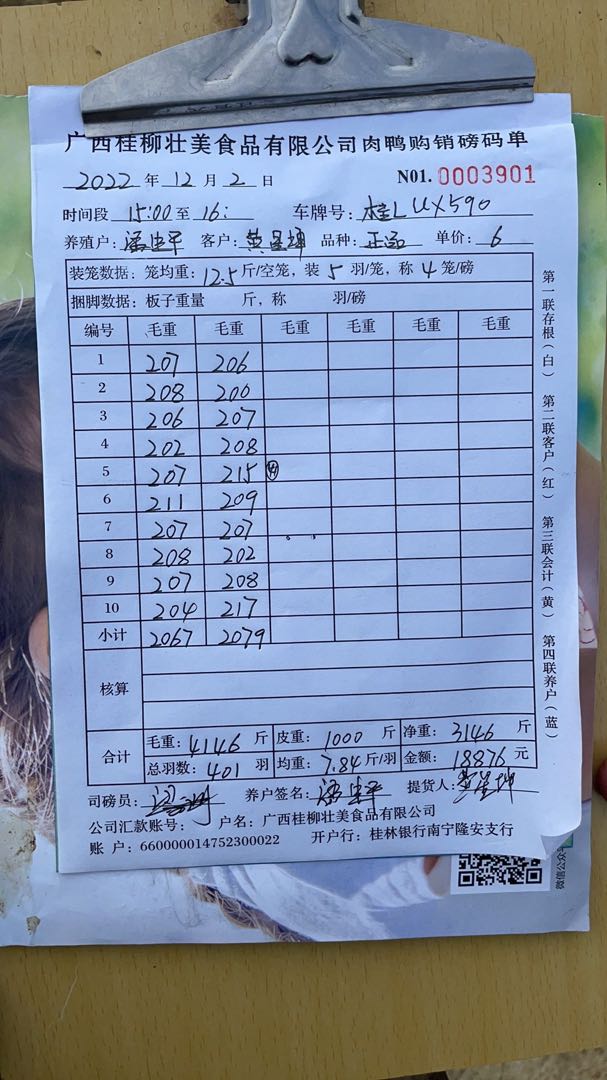 广西桂柳壮美食品有限公司肉鸭购销磅码单
2022 年 12 月 2 日 N01. 0003901
时间段 15:00 至 16: 车牌号: 桂L UX590
养殖户: 客户: 黄星坤 品种: 正品 单价: 6
装笼数据: 笼均重: 12.5 斤/空笼, 装 5 羽/笼, 称 4 笼/磅
捆脚数据: 板子重量 斤, 称 羽/磅
编号 毛重 毛重 毛重 毛重 毛重 毛重
1 207 206
2 208 200
3 206 207
4 202 208
5 207 215
6 211 209
7 207 207
8 208 202
9 207 208
10 204 217
小计 2067 2079
核算
合计 毛重: 4146 斤 皮重: 1000 斤 净重: 3146 斤
总羽数: 401 羽 均重: 7.84 斤/羽 金额: 18876 元
司磅员: 养户签名: 提货人: 黄星坤
公司汇款账号: 户名: 广西桂柳壮美食品有限公司
账 户: 660000014752300022 开户行: 桂林银行南宁隆安支行
第一联存根(白) 第二联客户(红) 第三联会计(黄) 第四联养户(蓝)
微信公众